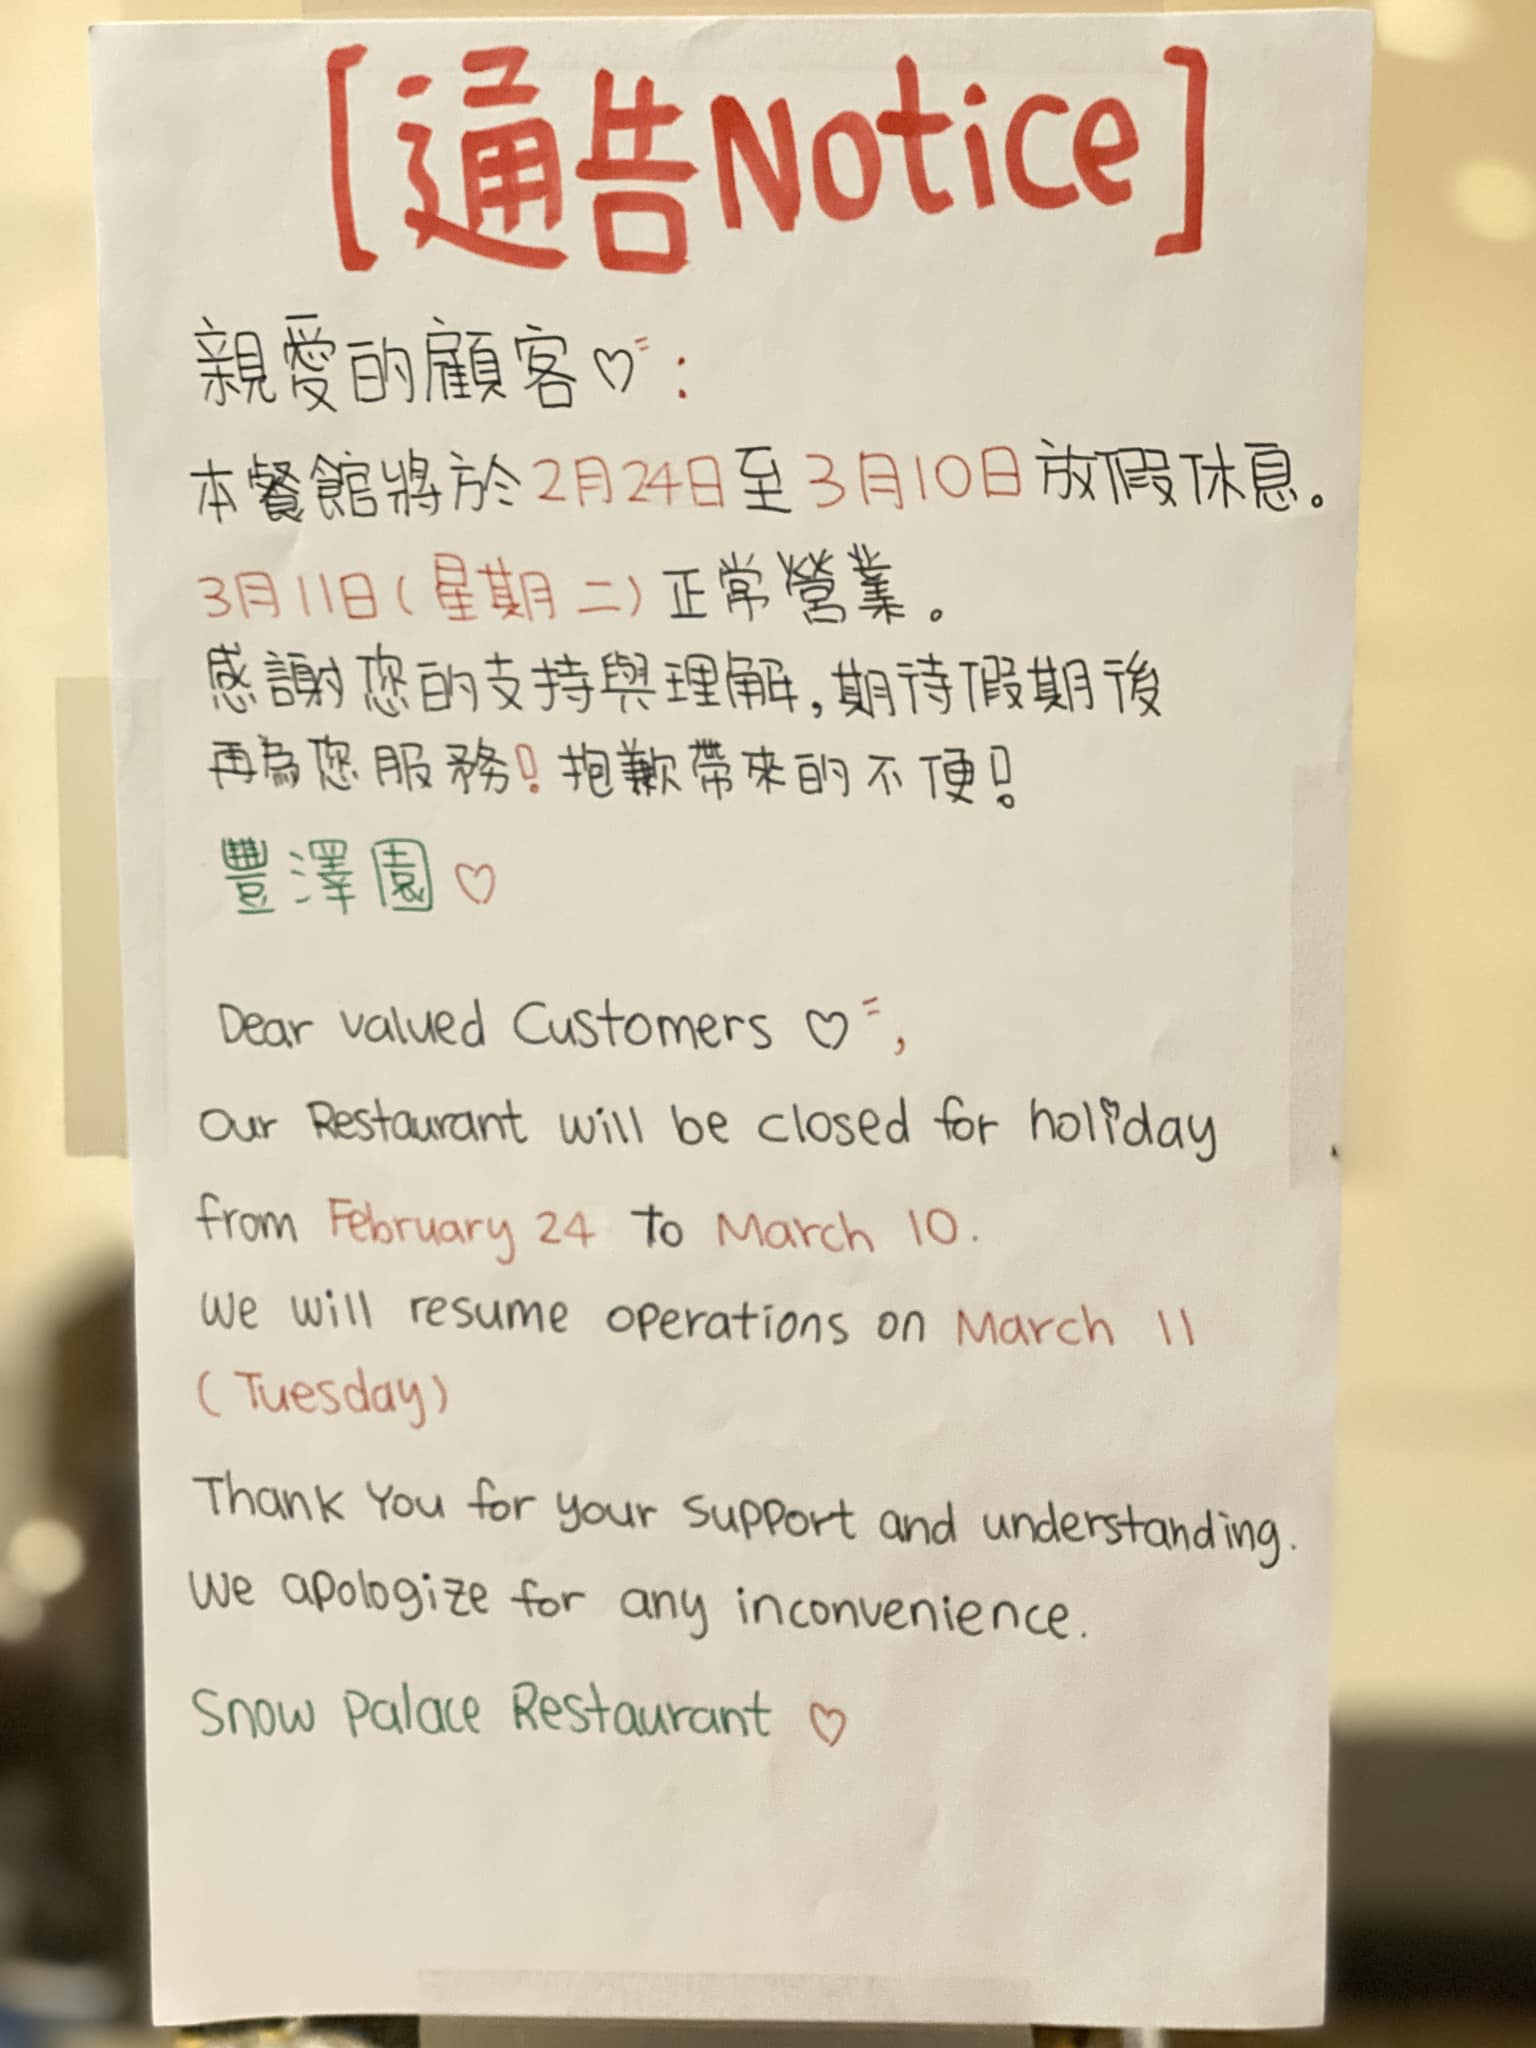 [通告Notice]
親愛的顧客♡:
本餐館將於2月24日至3月10日放假休息。
3月11日(星期二)正常營業。
感謝您的支持與理解,期待假期後
再為您服務!抱歉帶來的不便!
豐澤園♡
Dear valued Customers ♡,
Our Restaurant will be closed for holiday
from February 24 to March 10.
We will resume operations on March 11
(Tuesday)
Thank You for your support and understanding.
We apologize for any inconvenience.
Snow Palace Restaurant ♡